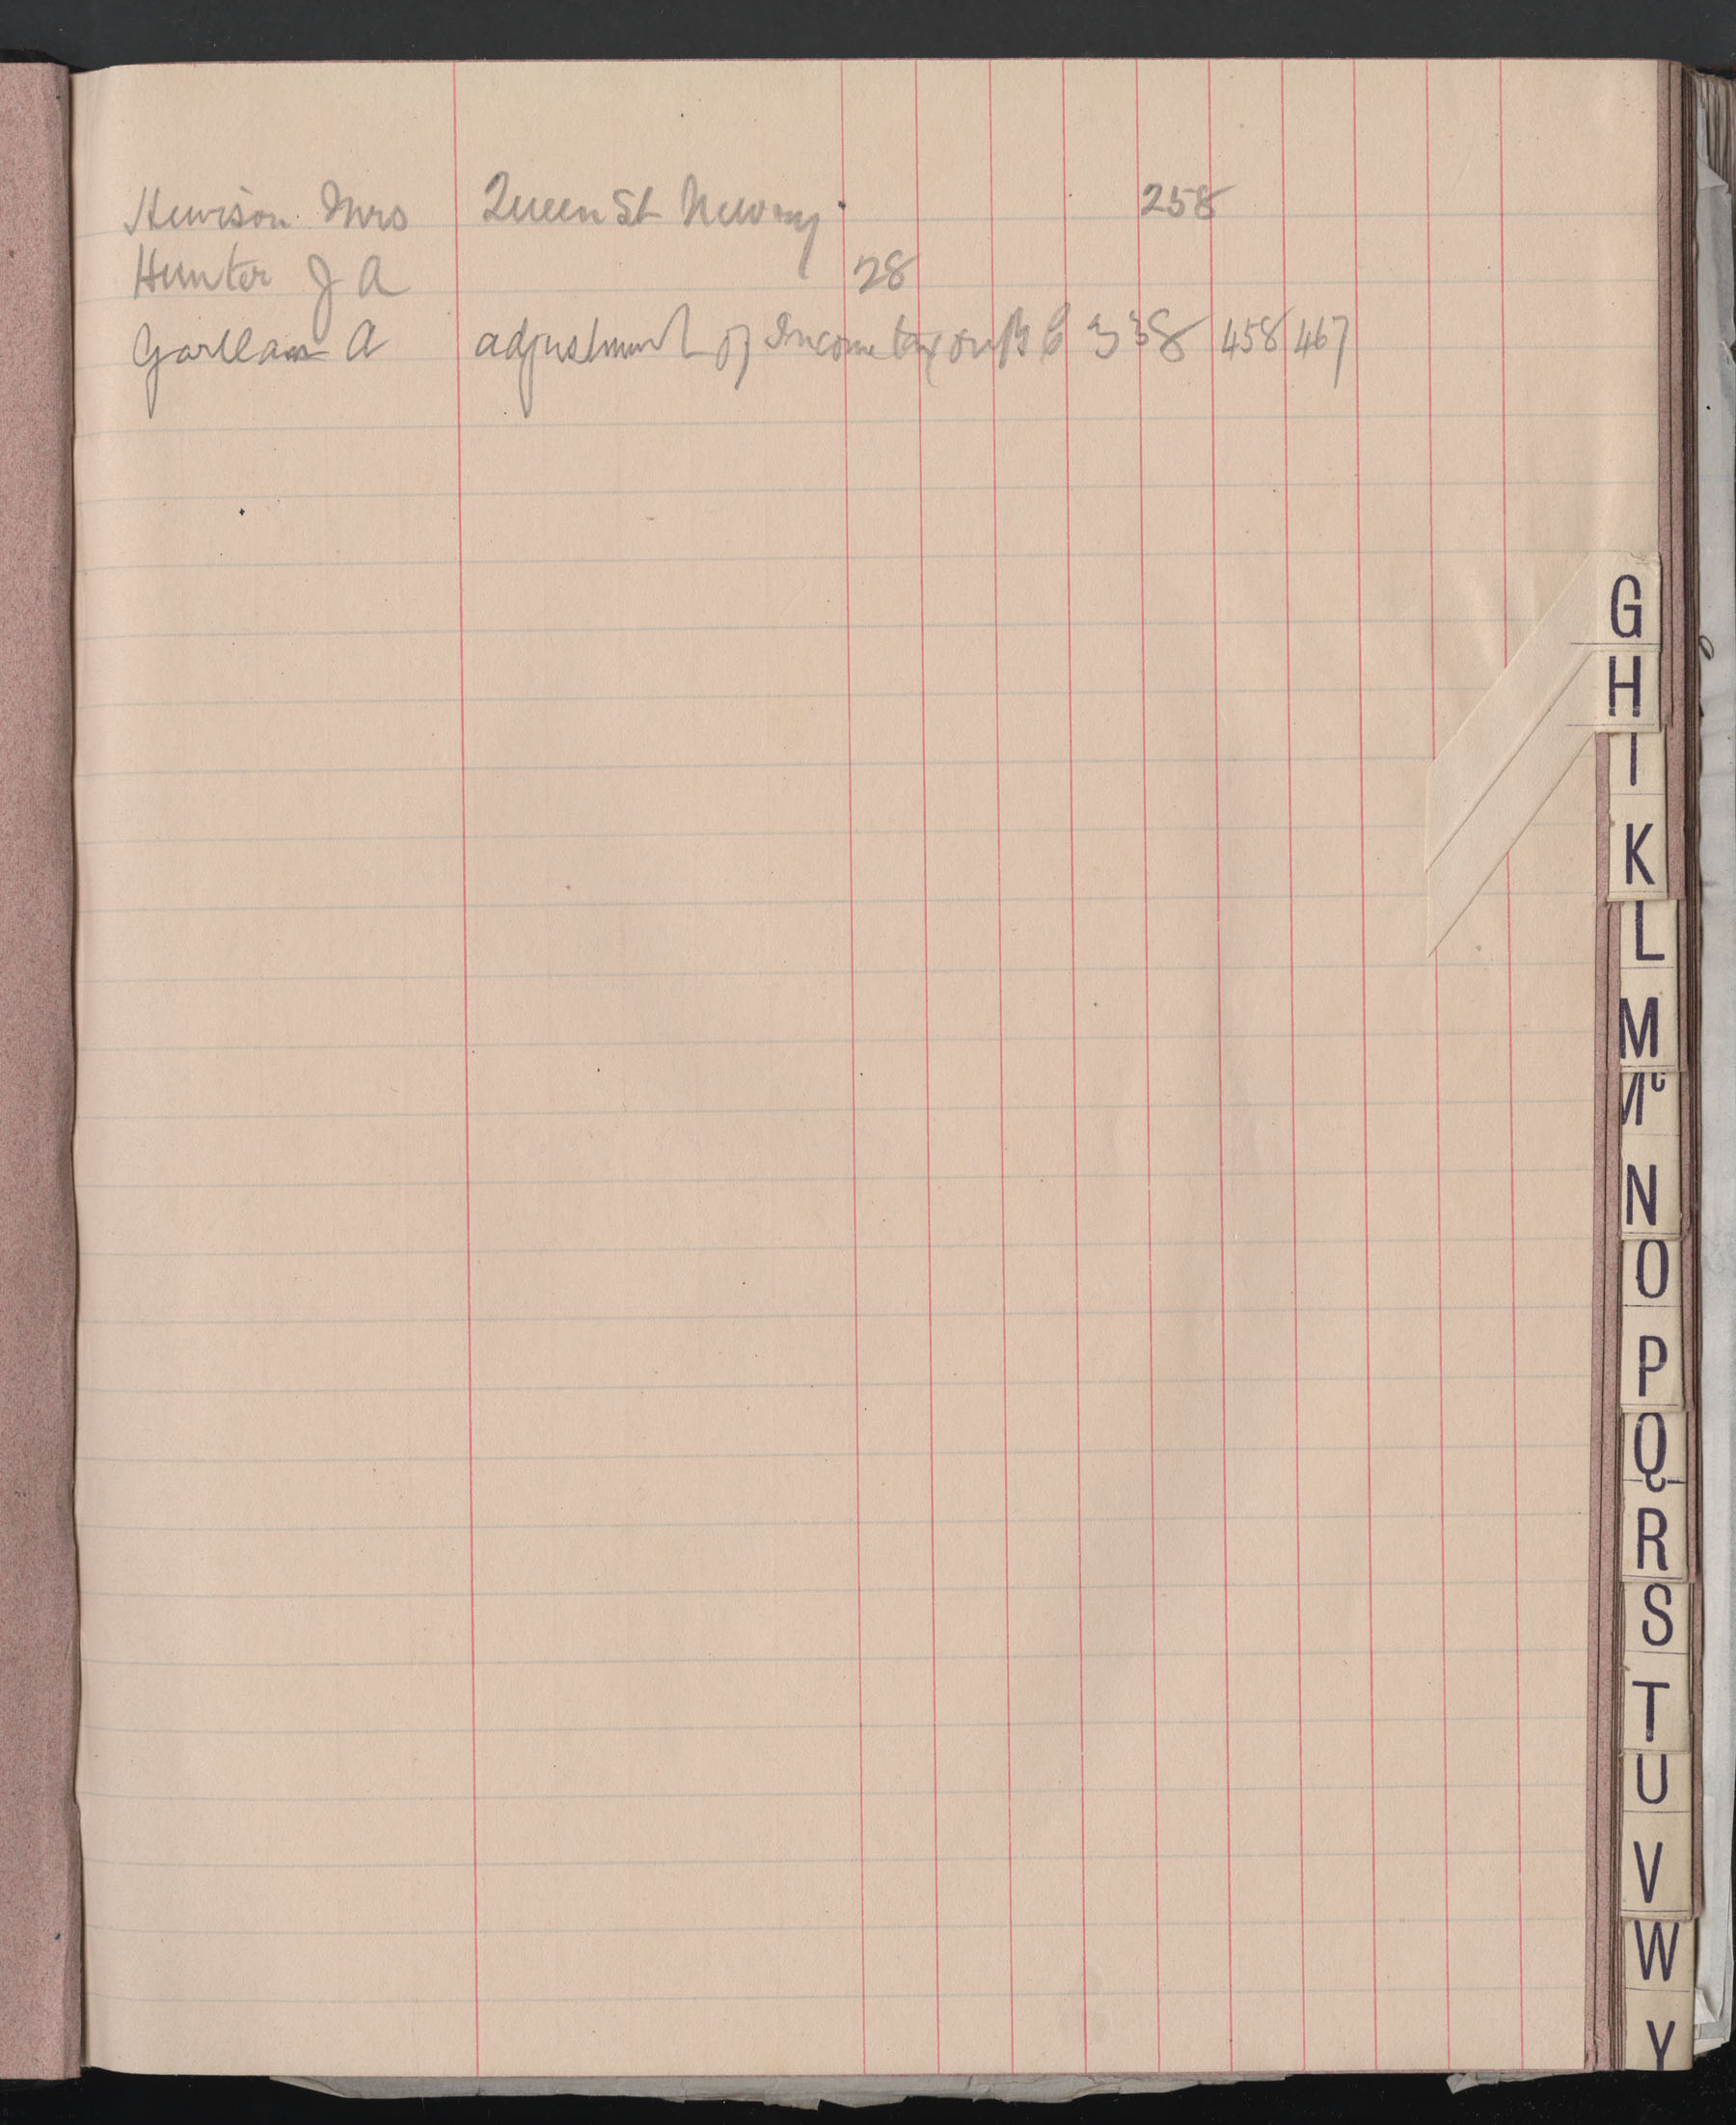 Hewison Mrs Queen St Newmy 258
Hunter J A 28
Garllan A adjustment of Income tax on B C 338 458 467
G
H
I
K
L
M
Mc
N
O
P
Q
R
S
T
U
V
W
Y